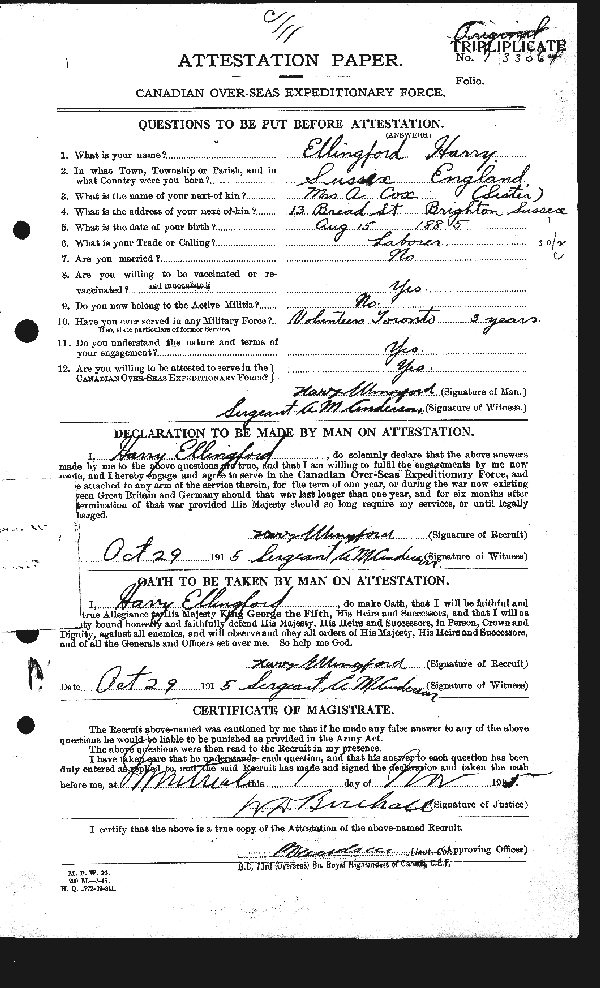 C/11
Original
ATTESTATION PAPER.
TRIPLICATE
No.
Folio.
CANADIAN OVER-SEAS EXPEDITIONARY FORCE.
QUESTIONS TO BE PUT BEFORE ATTESTATION.
(ANSWERS)
1. What is your name? Ellingford Harry
2. In what Town, Township or Parish, and in
what Country were you born? Sussex England
3. What is the name of your next-of-kin? Mrs A. Cox (Sister)
4. What is the address of your next-of-kin? 13 Bread St Brighton Sussex
5. What is the date of your birth? Aug 15 1885
6. What is your Trade or Calling? Laborer
7. Are you married? No
8. Are you willing to be vaccinated or re-
vaccinated? and inoculated? Yes.
9. Do you now belong to the Active Militia? No.
10. Have you ever served in any Military Force? Volunteers Toronto 2 years
If so, state particulars of former Service.
11. Do you understand the nature and terms of
your engagement? Yes.
12. Are you willing to be attested to serve in the
CANADIAN OVER-SEAS EXPEDITIONARY FORCE? Yes.
Harry Ellingford (Signature of Man.)
Sergeant A. M. Anderson (Signature of Witness.)
DECLARATION TO BE MADE BY MAN ON ATTESTATION.
I, Harry Ellingford, do solemnly declare that the above answers
made by me to the above questions are true, and that I am willing to fulfil the engagements by me now
made, and I hereby engage and agree to serve in the Canadian Over-Seas Expeditionary Force, and
e attached to any arm of the service therein, for the term of one year, or during the war now existing
ween Great Britain and Germany should that war last longer than one year, and for six months after
termination of that war provided His Majesty should so long require my services, or until legally
harged.
Harry Ellingford (Signature of Recruit)
Oct 29 1915 Sergeant A M Anderson (Signature of Witness)
OATH TO BE TAKEN BY MAN ON ATTESTATION.
I, Harry Ellingford, do make Oath, that I will be faithful and
true Allegiance to His Majesty King George the Fifth, His Heirs and Successors, and that I will as
ty bound honestly and faithfully defend His Majesty, His Heirs and Successors, in Person, Crown and
Dignity, against all enemies, and will observe and obey all orders of His Majesty, His Heirs and Successors,
and of all the Generals and Officers set over me. So help me God.
Harry Ellingford (Signature of Recruit)
Date Oct 29 1915 Sergeant A M Anderson (Signature of Witness)
CERTIFICATE OF MAGISTRATE.
The Recruit above-named was cautioned by me that if he made any false answer to any of the above
questions he would be liable to be punished as provided in the Army Act.
The above questions were then read to the Recruit in my presence.
I have taken care that he understands each question, and that his answer to each question has been
duly entered as replied to, and the said Recruit has made and signed the declaration and taken the oath
before me, at Montreal this 1 day of Nov 1915.
(Signature of Justice)
I certify that the above is a true copy of the Attestation of the above-named Recruit.
(Approving Officer)
O.C. 73rd (Overseas) Bn. Royal Highlanders of Canada, C.E.F.
M. F. W. 23.
H. Q. 1772-39-841.